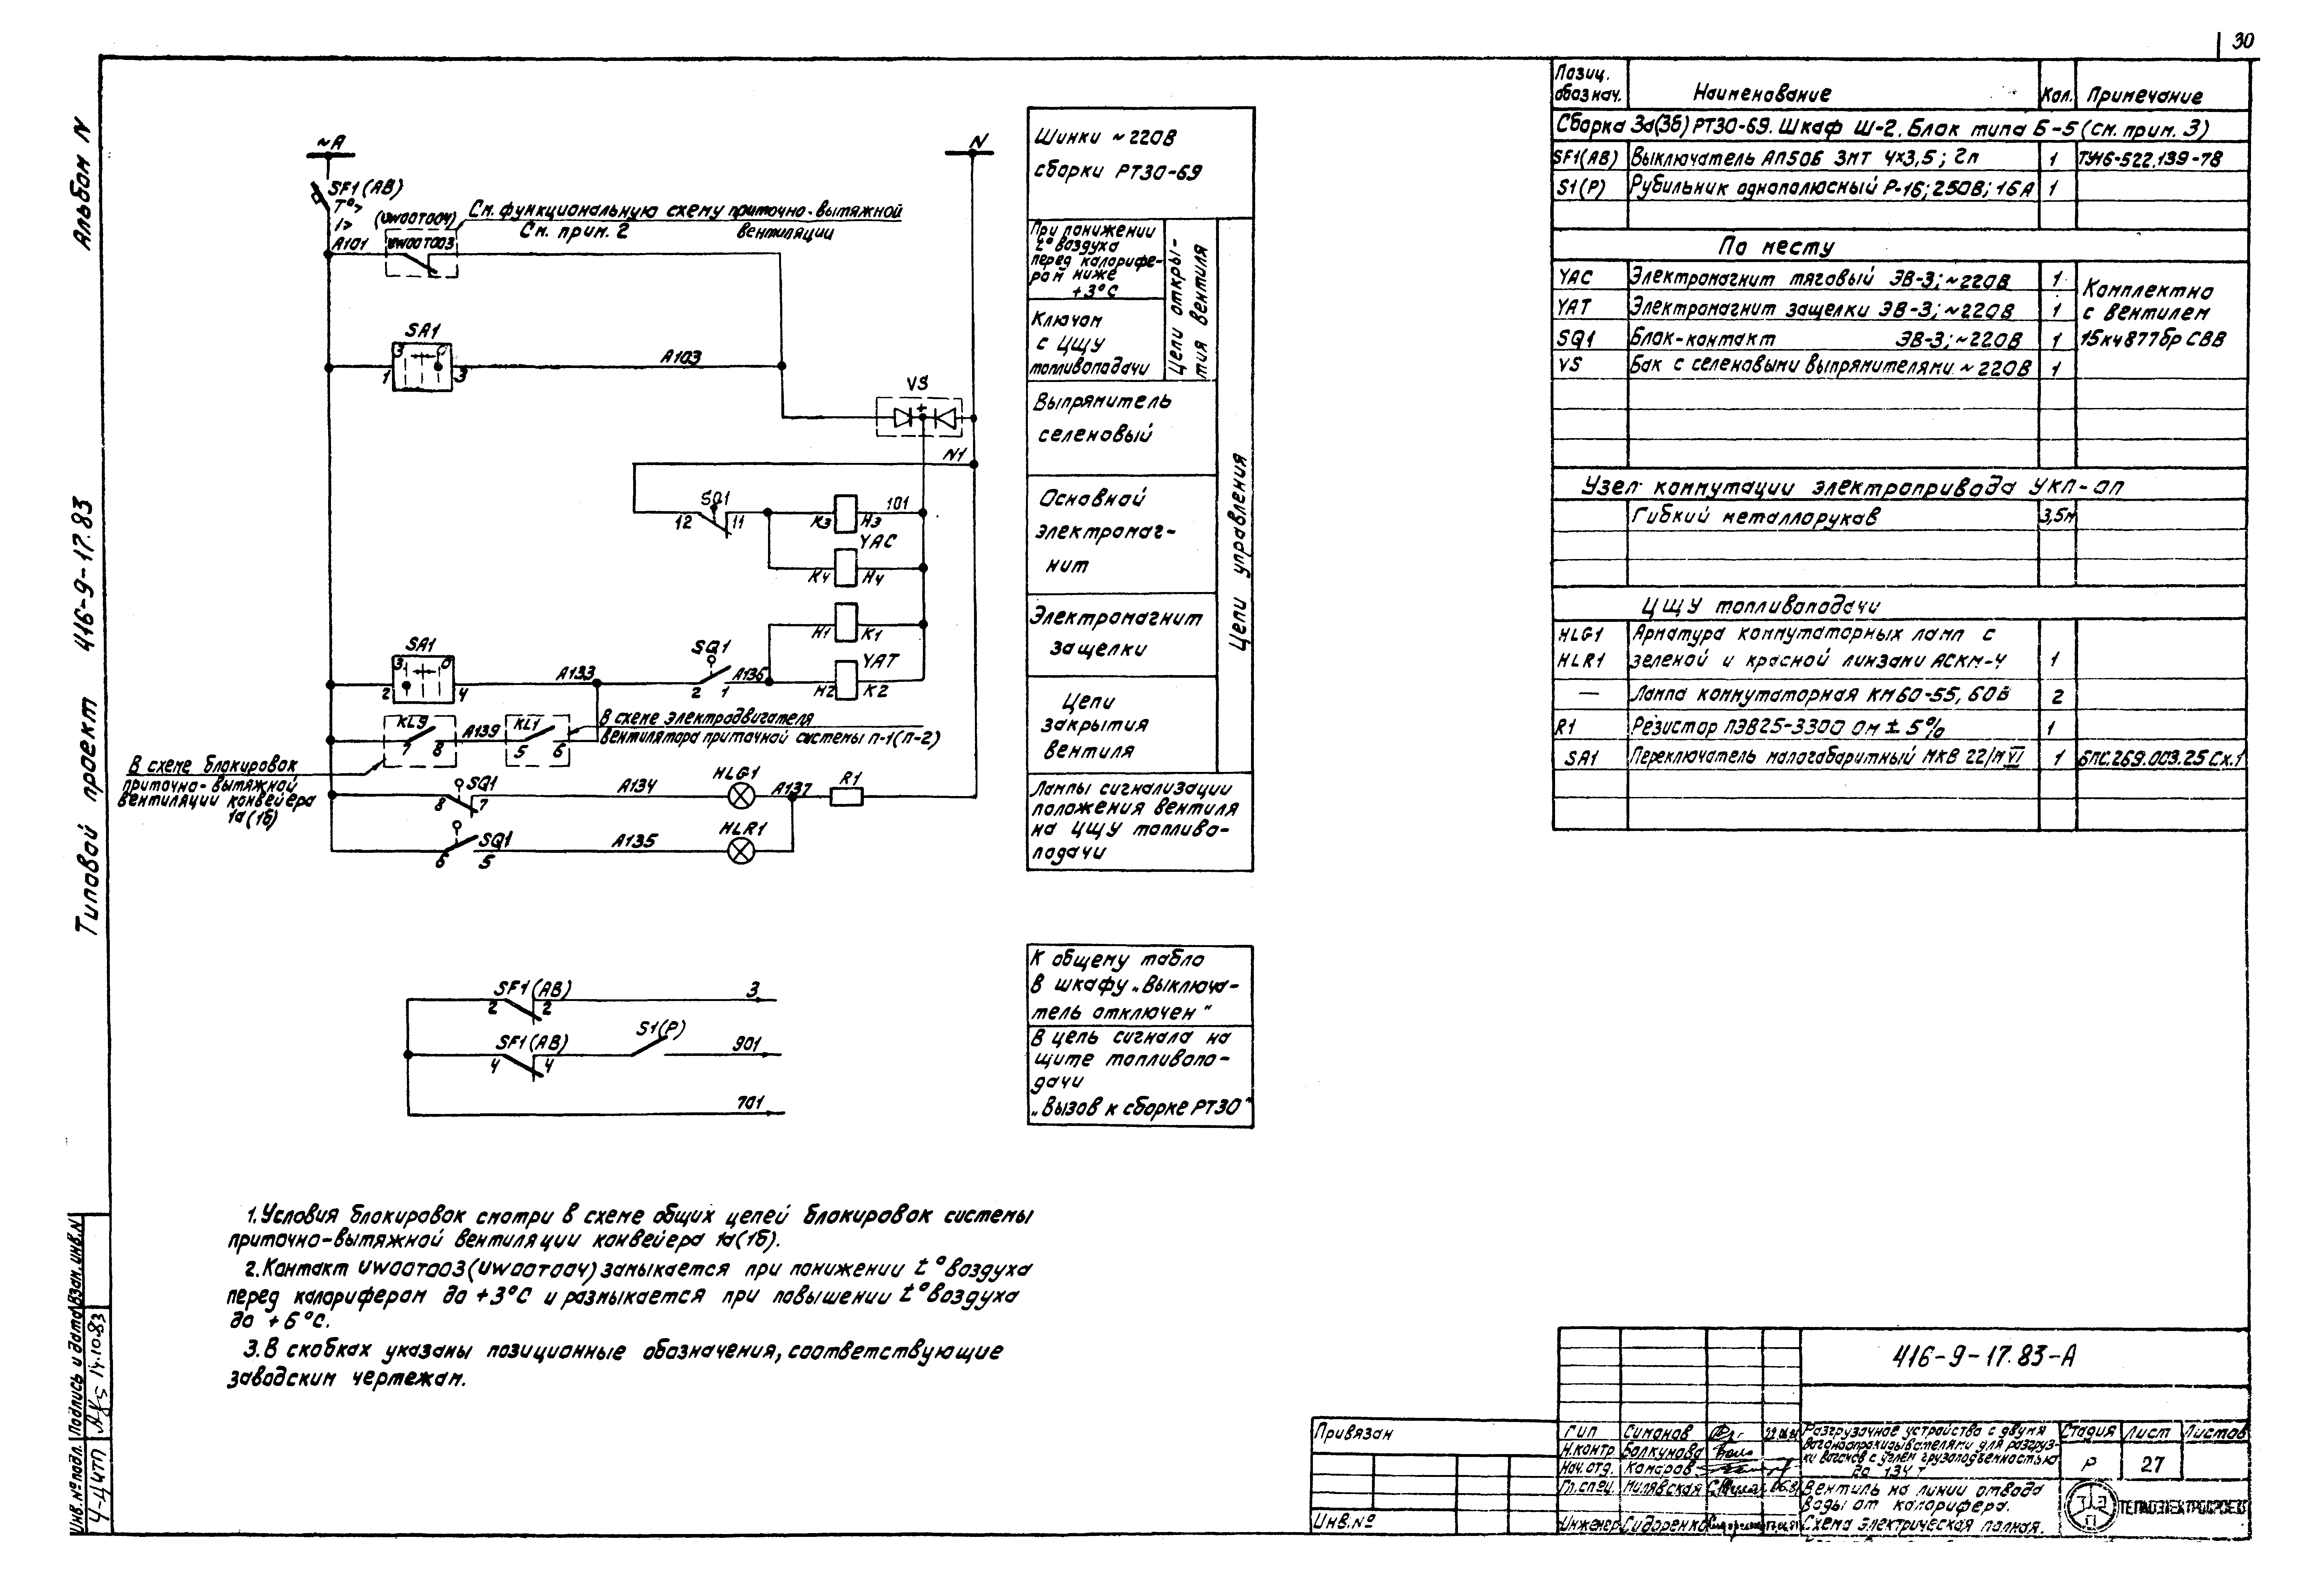 30
Альбом IV
Типовой проект 416-9-17.83
~А
N
SF1(АВ)
Т°>
I>
(UW00T004)
См. функциональную схему приточно-вытяжной
См. прим. 2 вентиляции
А101
UW00T003
SA1
3 0
1 3
А103
VS
+
N1
SQ1
12 11
К3 Н3
101
YAC
К4 Н4
Н1 К1
YAT
Н2 К2
SA1
3 0
2 4
А133
SQ1
2 1
А136
KL9
7 8
А139
KL1
5 6
В схеме электродвигателя
вентилятора приточной системы П-1(П-2)
В схеме блокировок
приточно-вытяжной
вентиляции конвейера
1а(1б)
SQ1
8 7
А134
HLG1
А137
R1
SQ1
6 5
А135
HLR1
Шинки ~220В
сборки РТ30-69
При понижении
t° воздуха
перед калорифе-
ром ниже
+3°С
Ключом
с ЦЩУ
топливоподачи
Цепи откры-
тия вентиля
Выпрямитель
селеновый
Основной
электромаг-
нит
Электромагнит
защелки
Цепи
закрытия
вентиля
Цепи управления
Лампы сигнализации
положения вентиля
на ЦЩУ топливо-
подачи
SF1(АВ)
2 2
3
SF1(АВ)
4 4
S1(Р)
901
701
К общему табло
в шкафу „Выключа-
тель отключен"
В цепь сигнала на
щите топливопо-
дачи
„Вызов к сборке РТ30"
1. Условия блокировок смотри в схеме общих цепей блокировок системы
приточно-вытяжной вентиляции конвейера 1а(1б).
2. Контакт UW00T003(UW00T004) замыкается при понижении t° воздуха
перед калорифером до +3°С и размыкается при повышении t° воздуха
до +6°С.
3. В скобках указаны позиционные обозначения, соответствующие
заводским чертежам.
Позиц. обознач. Наименование Кол. Примечание
Сборка 3а(3б) РТ30-69. Шкаф Ш-2. Блок типа Б-5 (см. прим. 3)
SF1(АВ) Выключатель АП50Б 3МТ 4х3,5; 2п 1 ТУ16-522.139-78
S1(Р) Рубильник однополюсный Р-16; 250В; 16А 1
По месту
YAC Электромагнит тяговый ЭВ-3; ~220В 1 Комплектно
YAT Электромагнит защелки ЭВ-3; ~220В 1 с вентилем
SQ1 Блок-контакт ЭВ-3; ~220В 1 15кч877бр СВВ
VS Бак с селеновыми выпрямителями ~220В 1
Узел коммутации электропривода УКП-ОП
Гибкий металлорукав 3,5м
ЦЩУ топливоподачи
HLG1 Арматура коммутаторных ламп с
HLR1 зеленой и красной линзами АСКМ-4 1
— Лампа коммутаторная КМ60-55, 60В 2
R1 Резистор ПЭВ25-3300 Ом ± 5% 1
SA1 Переключатель малогабаритный МКВ 22/М VI 1 6ПС.269.003.25 Сх.1
416-9-17.83-А
Привязан
Инв.№
ГИП Симонов
Н.контр. Балкунова
Нач.отд. Комаров
Гл.спец. Милявская
Инженер Сидоренко
Разгрузочное устройство с двумя
вагоноопрокидывателями для разгруз-
ки вагонов с углем грузоподъемностью
до 134 т
Стадия Лист Листов
Р 27
Вентиль на линии отвода
воды от калорифера.
Схема электрическая полная.
ТЭП
ТЕПЛОЭЛЕКТРОПРОЕКТ
Инв.№подл. Подпись и дата Взам.инв.№
14.10.83